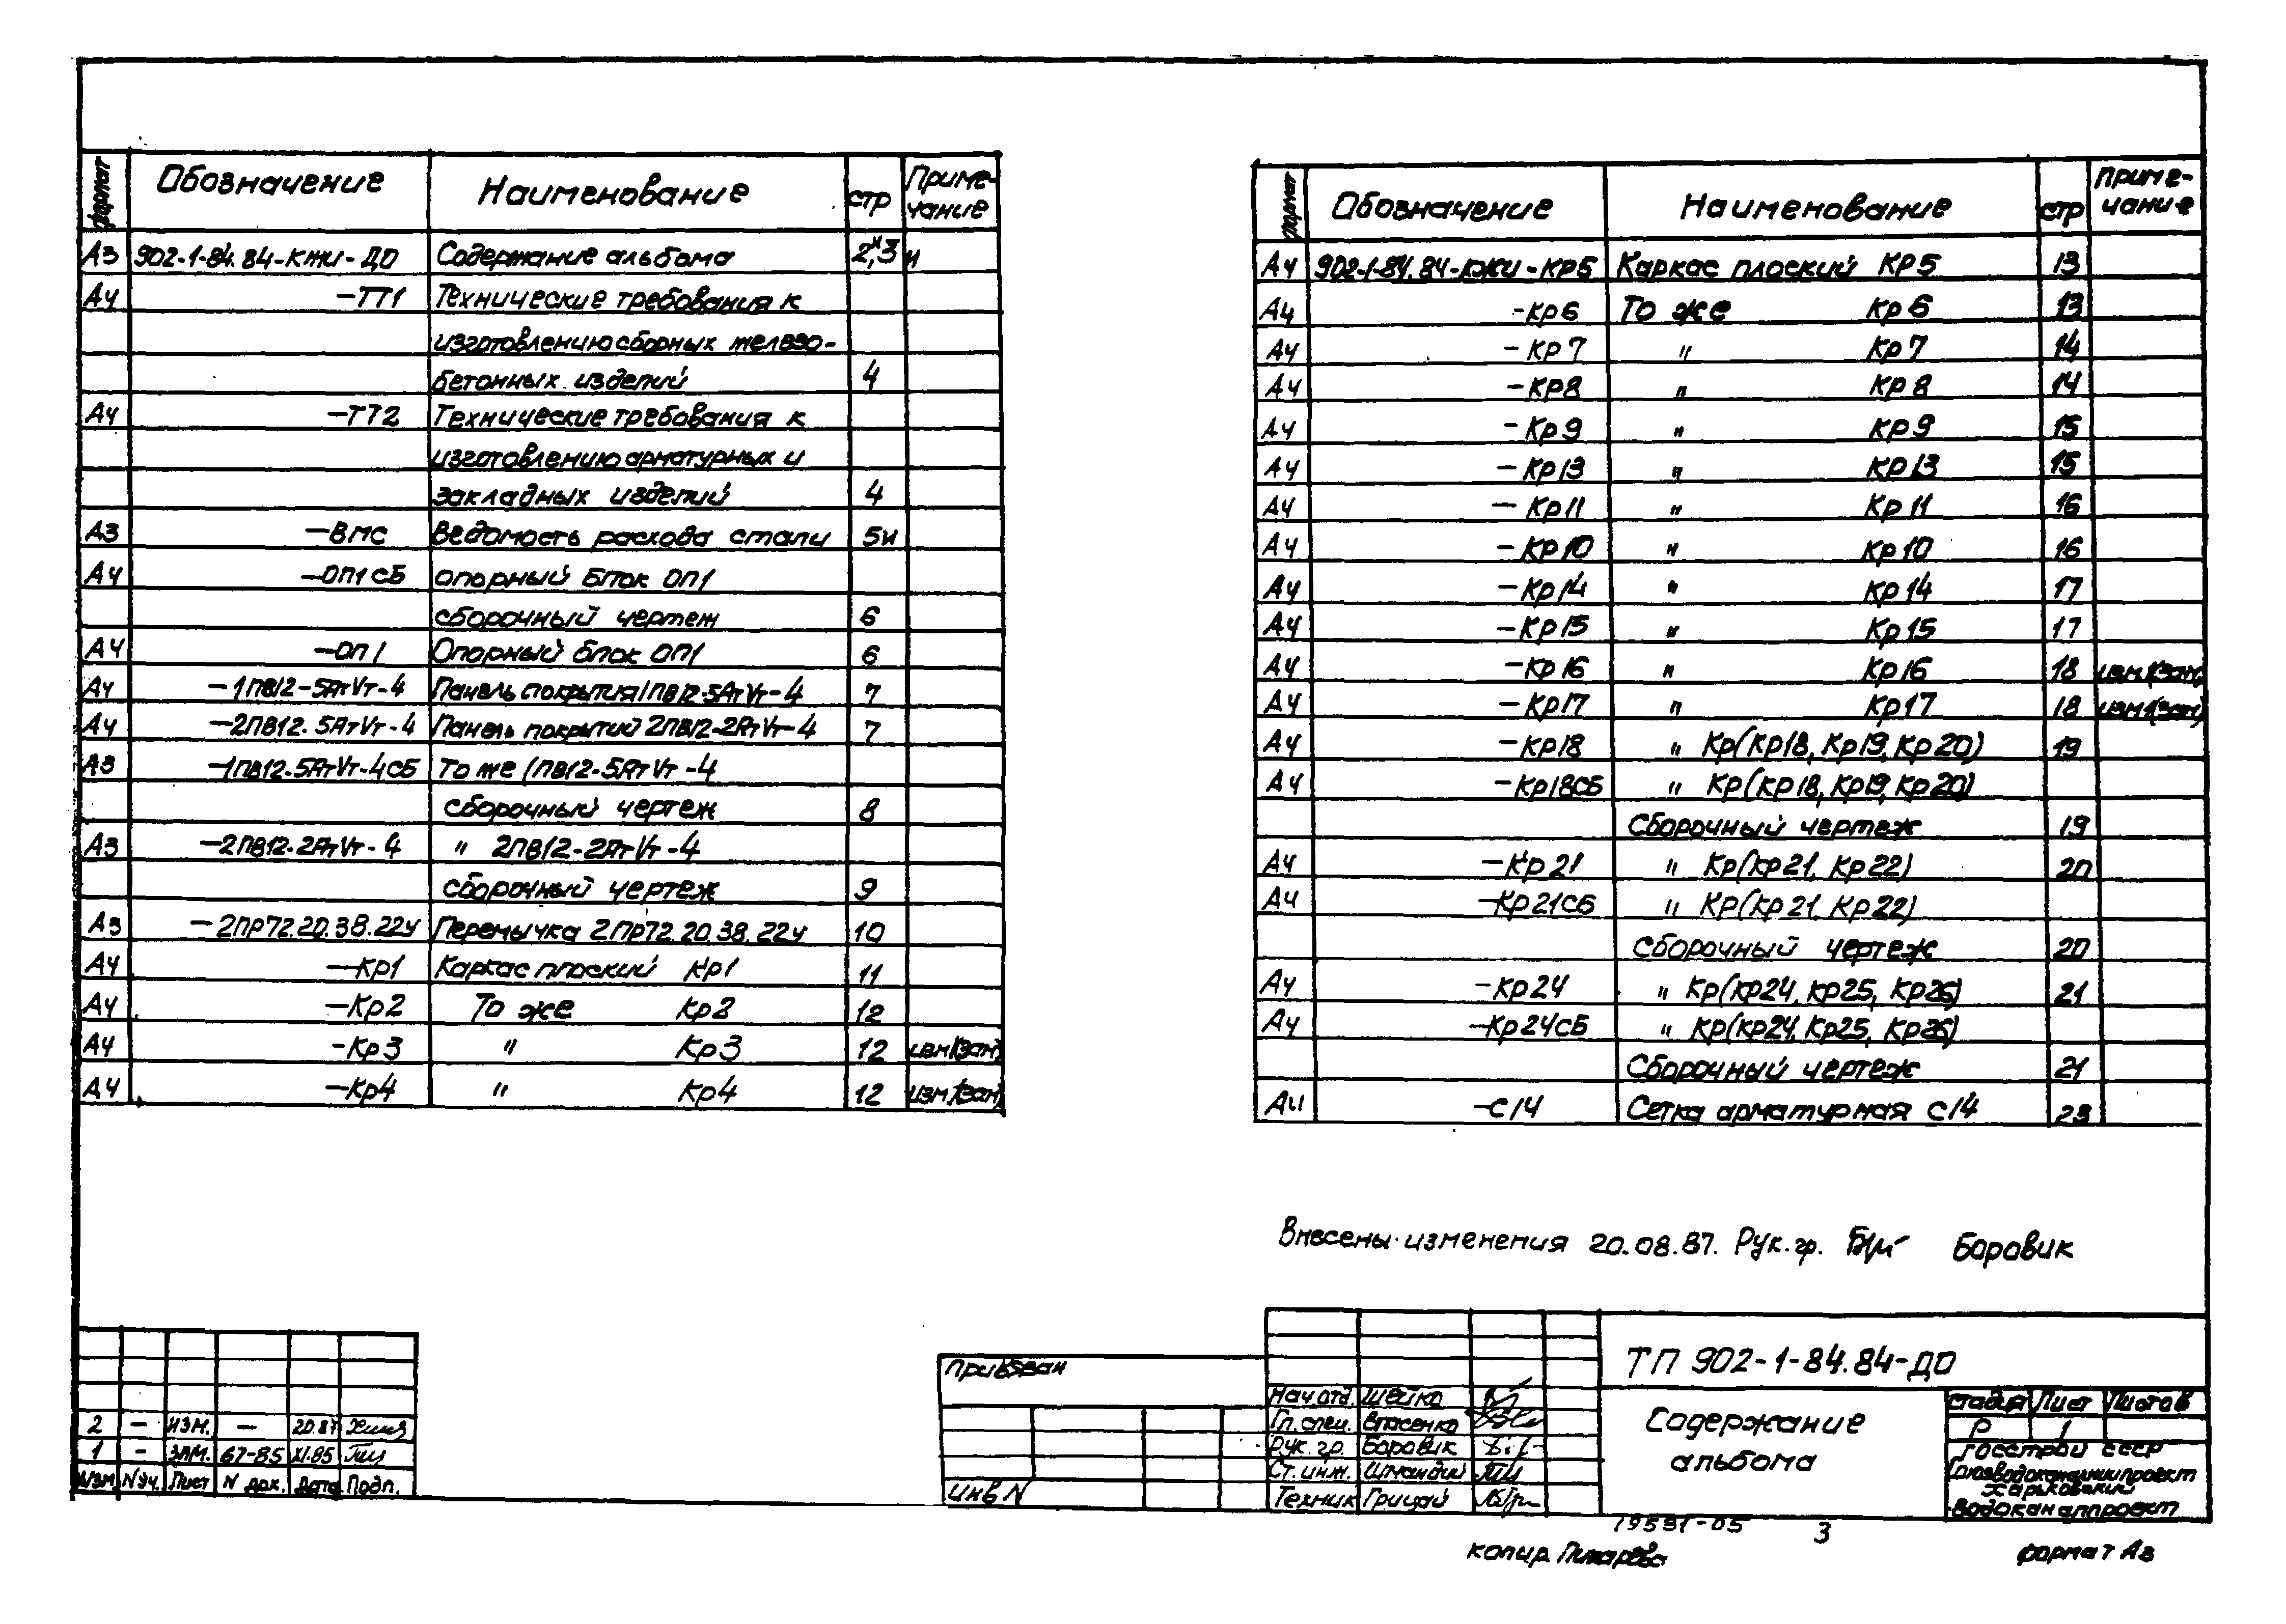 формат Обозначение Наименование стр Приме-
чание
А3 902-1-84.84-КЖИ-ДО Содержание альбома 2и,3и
А4 -ТТ1 Технические требования к
изготовлению сборных железо-
бетонных изделий 4
А4 -ТТ2 Технические требования к
изготовлению арматурных и
закладных изделий 4
А3 -ВМС Ведомость расхода стали 5и
А4 -ОП1СБ Опорный блок ОП1
сборочный чертеж 6
А4 -ОП1 Опорный блок ОП1 6
А4 -1ПВ12-5АтVт-4 Панель покрытия 1ПВ12-5АтVт-4 7
А4 -2ПВ12-5АтVт-4 Панель покрытий 2ПВ12-2АтVт-4 7
А3 -1ПВ12-5АтVт-4СБ То же 1ПВ12-5АтVт-4
сборочный чертеж 8
А3 -2ПВ12-2АтVт-4 " 2ПВ12-2АтVт-4
сборочный чертеж 9
А3 -2ПР72.20.38.22у Перемычка 2ПР72.20.38.22у 10
А4 -Кр1 Каркас плоский Кр1 11
А4 -Кр2 То же Кр2 12
А4 -Кр3 " Кр3 12 изм1(зам)
А4 -Кр4 " Кр4 12 изм1(зам)
формат Обозначение Наименование стр Приме-
чание
А4 902-1-84.84-КЖИ-КР5 Каркас плоский КР5 13
А4 -Кр6 То же Кр6 13
А4 -Кр7 " Кр7 14
А4 -Кр8 " Кр8 14
А4 -Кр9 " Кр9 15
А4 -Кр13 " Кр13 15
А4 -Кр11 " Кр11 16
А4 -Кр10 " Кр10 16
А4 -Кр14 " Кр14 17
А4 -Кр15 " Кр15 17
А4 -Кр16 " Кр16 18 изм1(зам)
А4 -Кр17 " Кр17 18 изм1(зам)
А4 -Кр18 " Кр(Кр18, Кр19, Кр20) 19
А4 -Кр18СБ " Кр(Кр18, Кр19, Кр20)
Сборочный чертеж 19
А4 -Кр21 " Кр(Кр21, Кр22) 20
А4 -Кр21СБ " Кр(Кр21, Кр22)
Сборочный чертеж 20
А4 -Кр24 " Кр(Кр24, Кр25, Кр26) 21
А4 -Кр24СБ " Кр(Кр24, Кр25, Кр26)
Сборочный чертеж 21
А4 -С14 Сетка арматурная С14 23
Внесены изменения 20.08.87. Рук.гр. Боровик
2 - ИЗМ. - 20.87
1 - ЗАМ. 67-85 XI.85
Изм N уч. Лист N док. Дата Подп.
Привязан
Инв N
Нач.отд. Шейко
Гл.спец. Власенко
Рук.гр. Боровик
Ст.инж.
Техник Грицай
ТП 902-1-84.84-ДО
Содержание
альбома
Стадия Лист Листов
Р 1
Госстрой СССР
Союзводоканалниипроект
Харьковский
Водоканалпроект
19531-05 3
копир.
формат А3